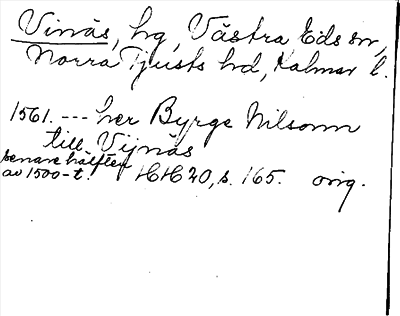 Vinäs, hg, Västra Eds sn,
Norra Tjusts hd, Kalmar l.
1561. --- her Byrge Nilsonn
till Vijnäs
senare hälften
av 1500-t. HH 20, s. 165. orig.